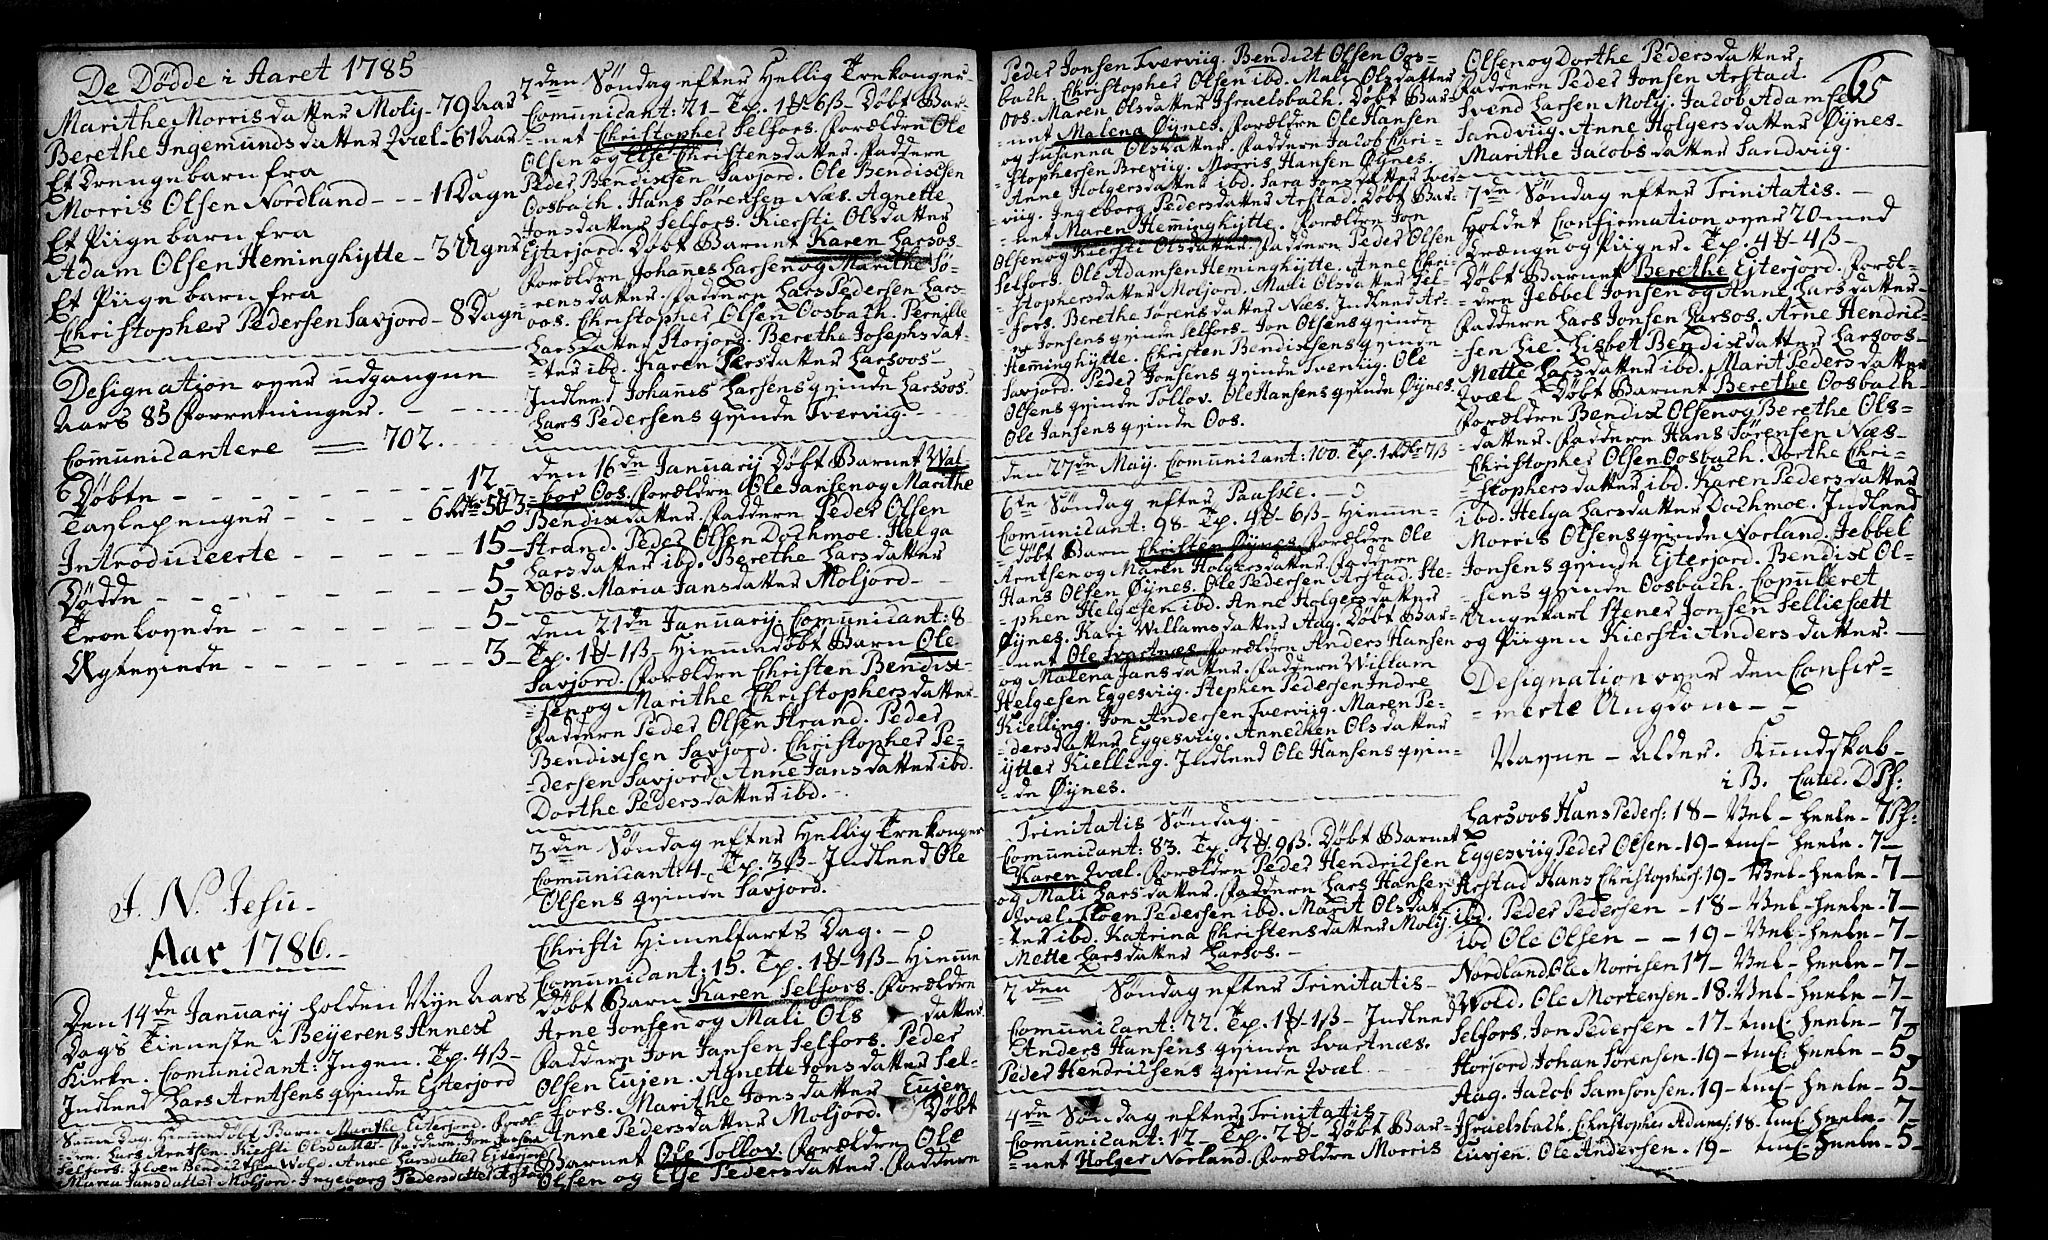 De Dödde i Aaret 1785
Marithe Morrisdatter Molij - 79 Aar
Berethe Ingemundsdatter Qvæl - 61 aar
Et Drengebarn fra
Morris Olsen Nordland - - - 11 Dagn
Et Piigebarn fra
Adam Olsen Heminghÿtte - 3 Ugner
Et Piigebarn fra
Christopher Pedersen Savjord - 8 Dagn
Designation over udgangne
Aars 85 Forretninger.
Comunicantere = 702.
Døbte - - - 12
Tavlepenger - - -
Introduceerte - - - 15
Dödde - - - 5
Troelovede - - - 5
Ægteviede - - - 3
J. N. Jesu -
Aar 1786. -
Den 14de Januarij holden Nÿe Aars
Dags Tienneste i Beÿerens Annext
Kirke. Comunicant: Ingen. Tp. 4ß -
Indleed Lars Arntsens qvinde Eiterjord
Samme Dag. Hiemmedøbt Barn Marithe Eiterjord. Foræl-
-dre. Lars Arntsen. Kiersti Olsdatter. Faddern Jon Jansen
Selfors. Wold. Anne Larsdatter Eiterjord
Maren Jansdatter Moljord. Ingeborg Pedersdatter Arstad
2den Søndag efter Hellig Trekonger -
Comunicant: 21 - Tp. 1 ₻ 6ß - Døbt Bar-
-net Christopher Selfors. Forældre Ole
Olsen og Else Christensdatter. Faddern
Peder Bendixsen Savjord. Ole Bendixsen
Oosbach. Hans Sørensen Næs. Agnette
Jonsdatter Selfors. Kiersti Olsdatter
Ejterjord. Døbt Barnet Karen Larsoos -
Forældre Johannes Larsen og Marithe Sö-
rensdatter. Faddern Lars Pedersen Lars-
oos. Christopher Olsen Oosbach. Pernille
Larsdatter Storjord. Berethe Josephsdat-
-ter ibd. Karen Larsdatter Larsoos -
Indleed Johannes Larsens qvinde Larsoos.
Lars Pedersens qvinde Tverviig. -
den 16de Januarij Døbt Barnet Wal-
-bor Oos. Forældre Ole Jansen og Marithe
Bendixdatter. Faddern Peder Olsen
Strand. Peder Olsen Dochmoe. Helga
Larsdatter ibd. Berethe Larsdatter
Oos. Maria Jansdatter Moljord -
den 21de Januarij. Comunicant: 8
Tp. 1 ₻ 1ß - Hiemmedøbt Barn Ole
Savjord. Forældre Christen Bendix-
-sen og Marithe Christophersdatter.
Faddern Peder Olsen Strand. Peder
Bendixsen Savjord. Christopher Pe-
-dersen Savjord. Anne Jansdatter ibd.
Dorthe Pedersdatter ibd. -
3die Søndag efter Hellig Trekonger
Comunicant: 4. Tp. 3ß - Indleed Ole
Olsens qvinde Savjord.
Christi Himelfarts Dag. -
Comunicant: 15. Tp. 1 ₻ - 1ß - Hiemme
Døbt Barn Karen Selfors. Forældre
Arne Jonsen og Mali Ols datter
Faddern Jon Jansen Selfors. Peder
Olsen Eujen. Agnette Jonsdatter Sel-
fors. Marithe Jonsdatter Eujen
Anne Pedersdatter Moljord. Døbt
Barnet Ole Tollov. Forældre Ole
Olsen og Else Pedersdatter. Faddern
Peder Jonsen Tverviig. Bendict Olsen Oos-
bach. Christopher Olsen ibd. Mali Olsdatter
Oos. Maren Olsdatter Israelsbach. Døbt Bar-
-net Malena Øynes. Forældre Ole Hansen
og Susanna Olsdatter. Faddern Jacob Chri-
stophersen Breviig. Morris Hansen Øynes.
Anne Holgersdatter ibd. Sara Jonsdatter Tver-
viig. Ingeborg Pedersdatter Arstad. Døbt Bar-
-net Maren Heminghÿtte. Forældre Jon
Olsen og Kiersti Olsdatter. Faddern Peder Olsen
Selfors. Ole Adamsen Heminghÿtte. Anne Chri-
-stophersdatter Moljord. Mali Olsdatter Sel-
fors. Berethe Sørensdatter Næs. Indleed Ar-
-ne Jonsens qvinde Selfors. Jon Olsens qvinde
Heminghÿtte. Christen Bendixsens qvinde
Savjord. Peder Jonsens qvinde Tverviig. Ole
Olsens qvinde Tollov. Ole Hansens qvinde Øÿnes.
Ole Jansens qvinde Oos.
den 27de Maij. Comunicant: 100. Tp. 1 7ß
6te Søndag efter Paaske. -
Comunicant: 98 - Tp. 4 ₻ - 6ß - Hiemme-
-døbt Barn Christen Øÿnes. Forældre Ole
Arntsen og Maren Holgersdatter. Faddern
Hans Olsen Øÿnes. Ole Pedersen Arstad. Ste-
-phen Helgesen ibd. Anne Holgersdatter
Øÿnes. Kari Willamsdatter Aag. Døbt Bar-
-net Ole Svartnæs. Forældre Anders Hansen
og Malena Jansdatter. Faddern Willam
Helgesen Eggesviig. Stephen Pedersen Indre
Kielling. Jon Andersen Tverviig. Maren Pe-
-dersdatter Eggesviig. Annechen Olsdatter
ÿtter Kielling. Indleed Ole Hansens qvin-
-de Øÿnes.
Trinitatis Søndag. -
Comunicant: 83. Tp. 2 ₻ 9ß. Døbt Barnet
Karen Qvæl. Forældre Peder Hendricsen
og Mali Larsdatter. Faddern Lars Hansen
Qvæl. Floen Pedersen ibd. Marit Olsdat-
-ter ibd. Katrina Christensdatter Molij.
Mette Larsdatter Larsos. -
2den Søndag efter Trinitatis -
Comunicant: 22. Tp. 1 ₻ - 1ß - Indleed
Anders Hansens qvinde Svartnæs.
Peder Hendricsens qvinde Qvæl
4de Søndag efter Trinitatis
Comunicant: 12 - Tp. 2 ₻ - Døbt Bar-
-net Holger Norland. Forældre Morris
65
Olsen og Dorthe Pedersdatter.
Faddern Peder Jonsen Arstad.
Svend Larsen Molij. Jacob Adamsen
Sandviig. Anne Holgersdatter Øÿnes -
Marithe Jacobsdatter Sandviig.
7de Søndag efter Trinitatis. -
Holdet Confirmation over 20 med
Drænge og Piiger. Tp. 4 ₻ - 4ß -
Døbt Barnet Berethe Ejterjord. Foræl-
-dre Jebbel Jonsen og Anne Larsdatter -
Faddern Lars Jonsen Larsos. Arne Hendric-
-sen Lie. Lisbet Bendixdatter Larsoos -
Mette Larsdatter ibd. Marit Pedersdatter
Qvæl - Døbt Barnet Berethe Oosbach -
Forældre Bendix Olsen og Berethe Ols-
-datter. Faddern Hans Sørensen Næs -
Christopher Olsen Oosbach. Dorthe Chri-
-stophersdatter ibd. Karen Pedersdatter
ibd. Helga Larsdatter Dochmoe. Indleed
Morris Olsens qvinde Norland. Jebbel
Jonsens qvinde Ejterjord. Bendix Ol-
-sens qvinde Oosbach. Copuleret
Ungekarl Stener Jonsen Selliesætt
og Piigen Kiersti Andersdatter. -
Designation over den Confir-
-merte Ungdom - -
Navne - alder. Kundskab -
i B. Catec. DPf:
Larsoos Hans Peders: 18 - Vel - heele - 7 Pf:
Eggesviig Peder Olsen - 19 - tml - heele - 7 -
Arstad Hans Christophers: 19 - Vel - heele - 7 -
ibd. Peder Pedersen - 18 - Vel - heele - 7 -
ibd Ole Olsen - - 19 - Vel - heele - 7 -
Nordland Ole Morrisen 17 - Vel - heele - 7 -
Wold. Ole Mortensen - 18. Vel - heele - 7 -
Selfors. Jon Pedersen - 17 - tml heele - 7 -
Storjord. Johan Sörensen. 19 - tml: heele - 5 -
Aag. Jacob Samsonsen. 19 - tml - heele - 5 -
Israelsbach. Christopher Adams: 18. tml heele - 7 -
Eursen. Ole Andersen. 19 - tml heele - 5 -